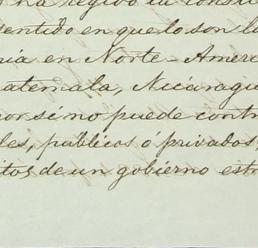 ha regido la consti
sentido en que lo son la
nia en Norte-Amer
uatemala, Nicaragu
por sí no puede contr
les, públicos ó privados,
tos, de un gobierno estr